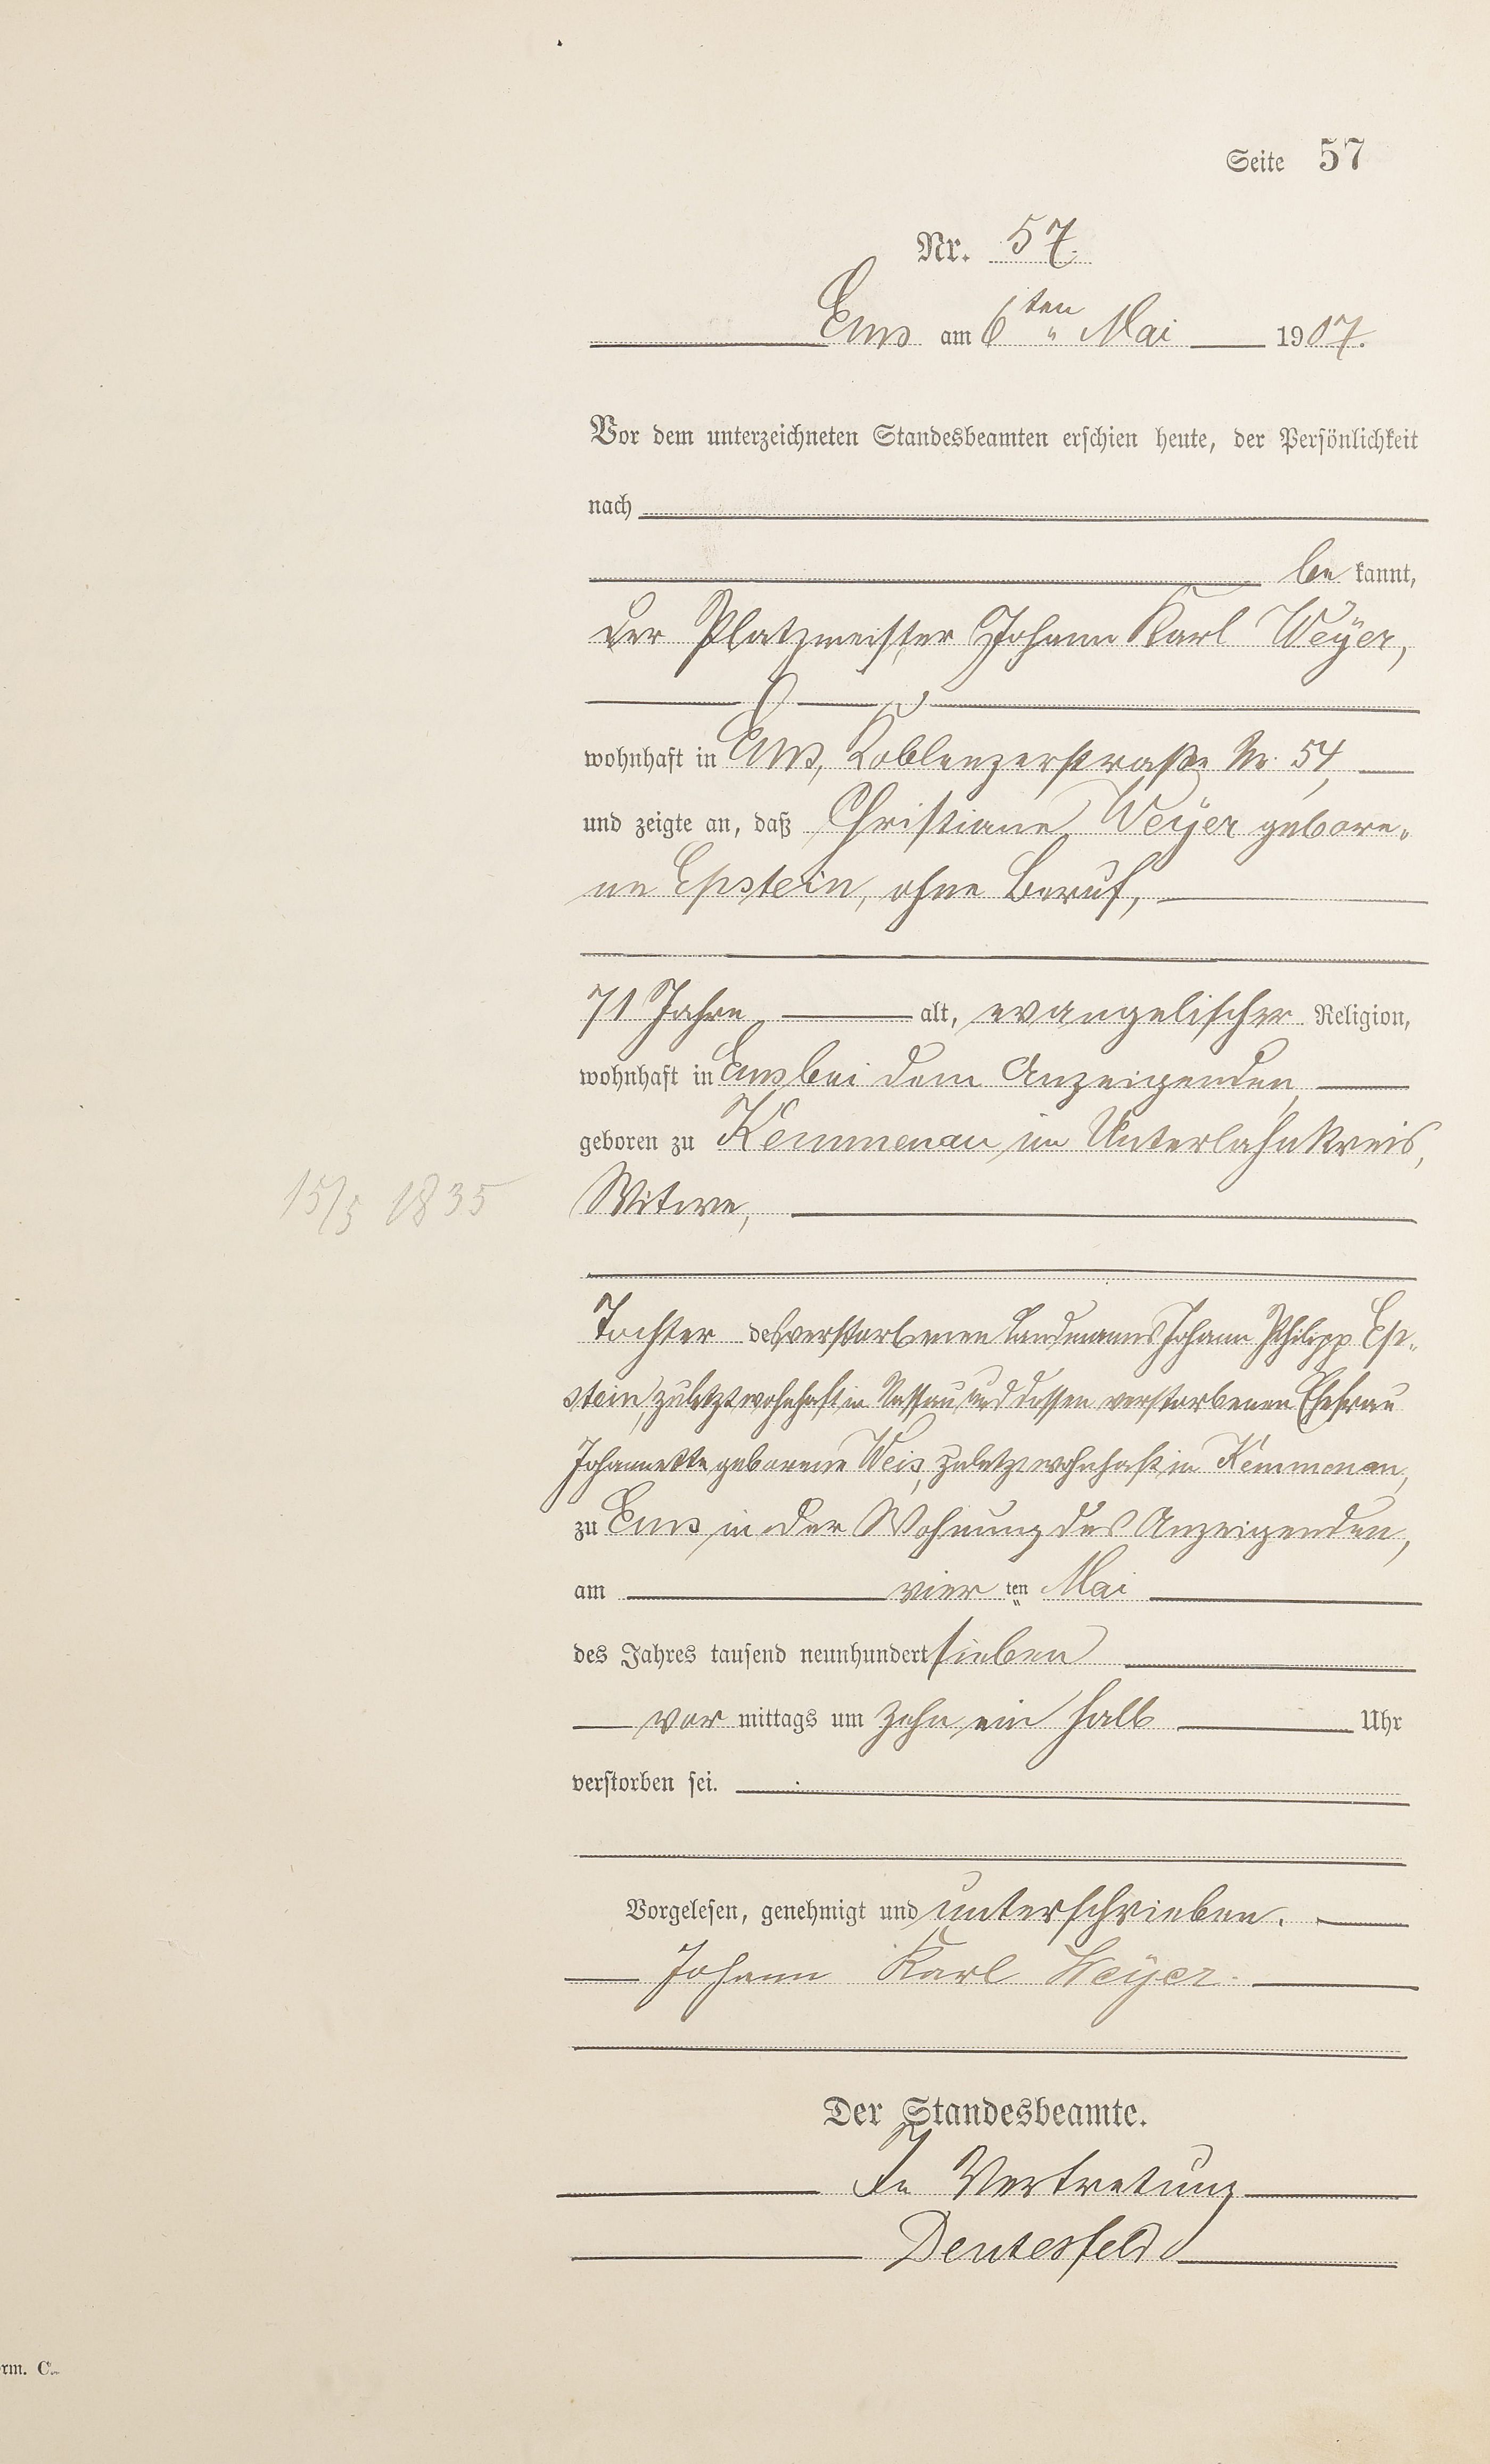 Seite 57
Nr. 57.
Ems am 6ten " Mai 1907.
Vor dem unterzeichneten Standesbeamten erschien heute, der Persönlichkeit
nach
be kannt,
der Platzmeister Johann Karl Weyer,
wohnhaft in Ems, Koblenzerstraße Nr. 54,
und zeigte an, daß Christiane Weyer gebore-
ne Epstein, ohne Beruf,
71 Jahre alt, evangelischer Religion,
wohnhaft in Ems bei dem Anzeigenden,
geboren zu Kemmenau im Unterlahnkreis,
15/5 1835 Witwe,
Tochter des verstorbenen Landmanns Johann Philipp Ep-
stein, zuletzt wohnhaft in Nassau und dessen verstorbenen Ehefrau
Johannette geborene Weis, zuletzt wohnhaft in Kemmenau,
zu Ems in der Wohnung des Anzeigenden,
am vier ten Mai
des Jahres tausend neunhundert sieben
vor mittags um zehn ein halb Uhr
verstorben sei.
Vorgelesen, genehmigt und unterschrieben.
Johann Karl Weyer.
Der Standesbeamte.
In Vertretung
Deutesfeld
rm. C.